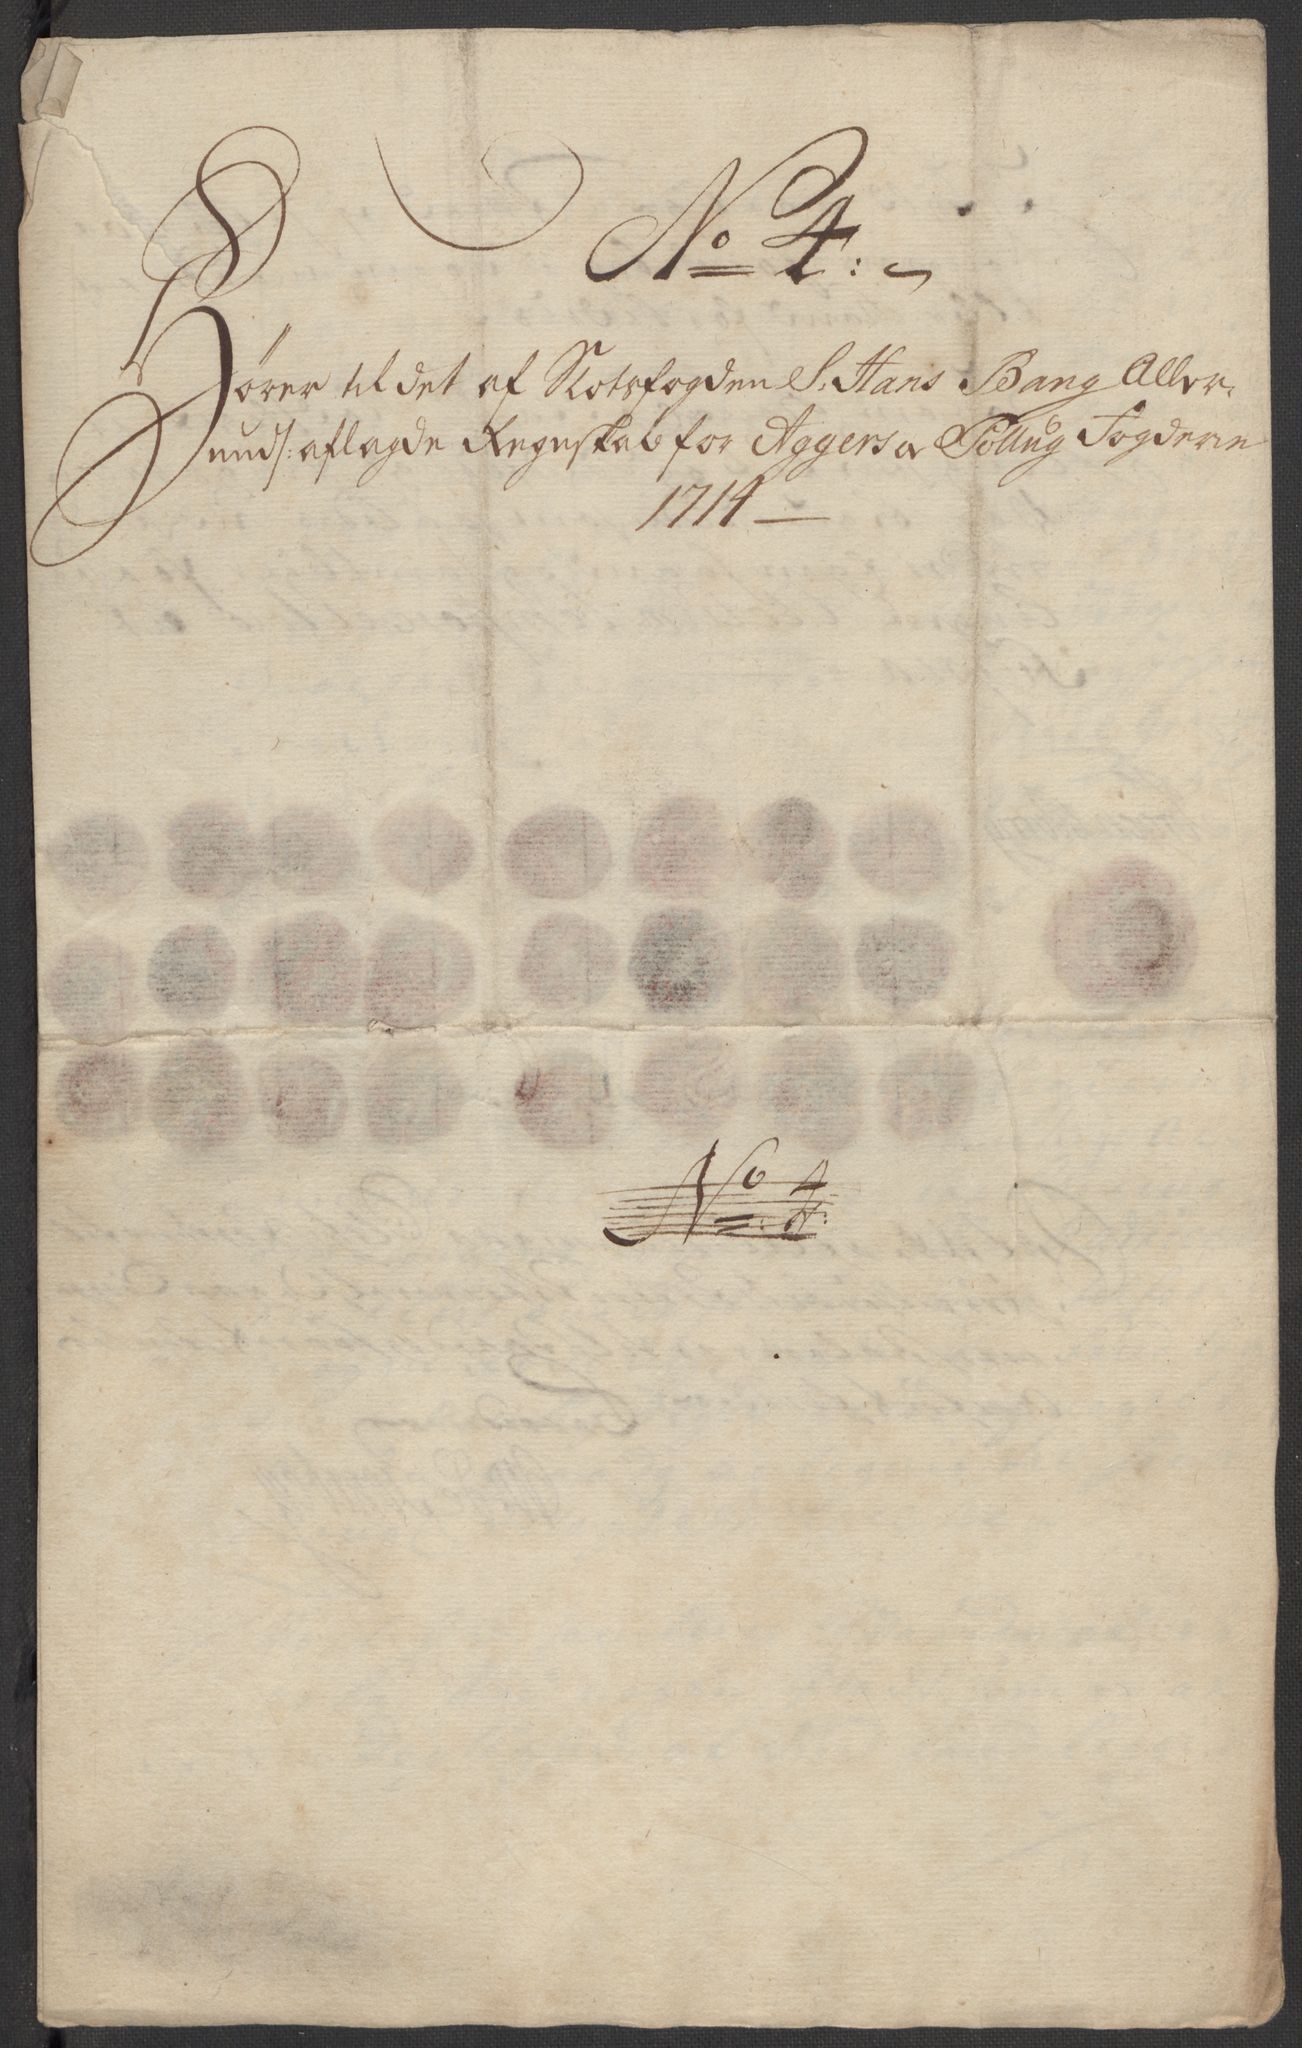 No 4:
Hörer til det af Slotsfogden S. Hans Bang Aller,,
unds: aflagde Regnskab for Aggers og Follug Fogderie
1714
No 4: